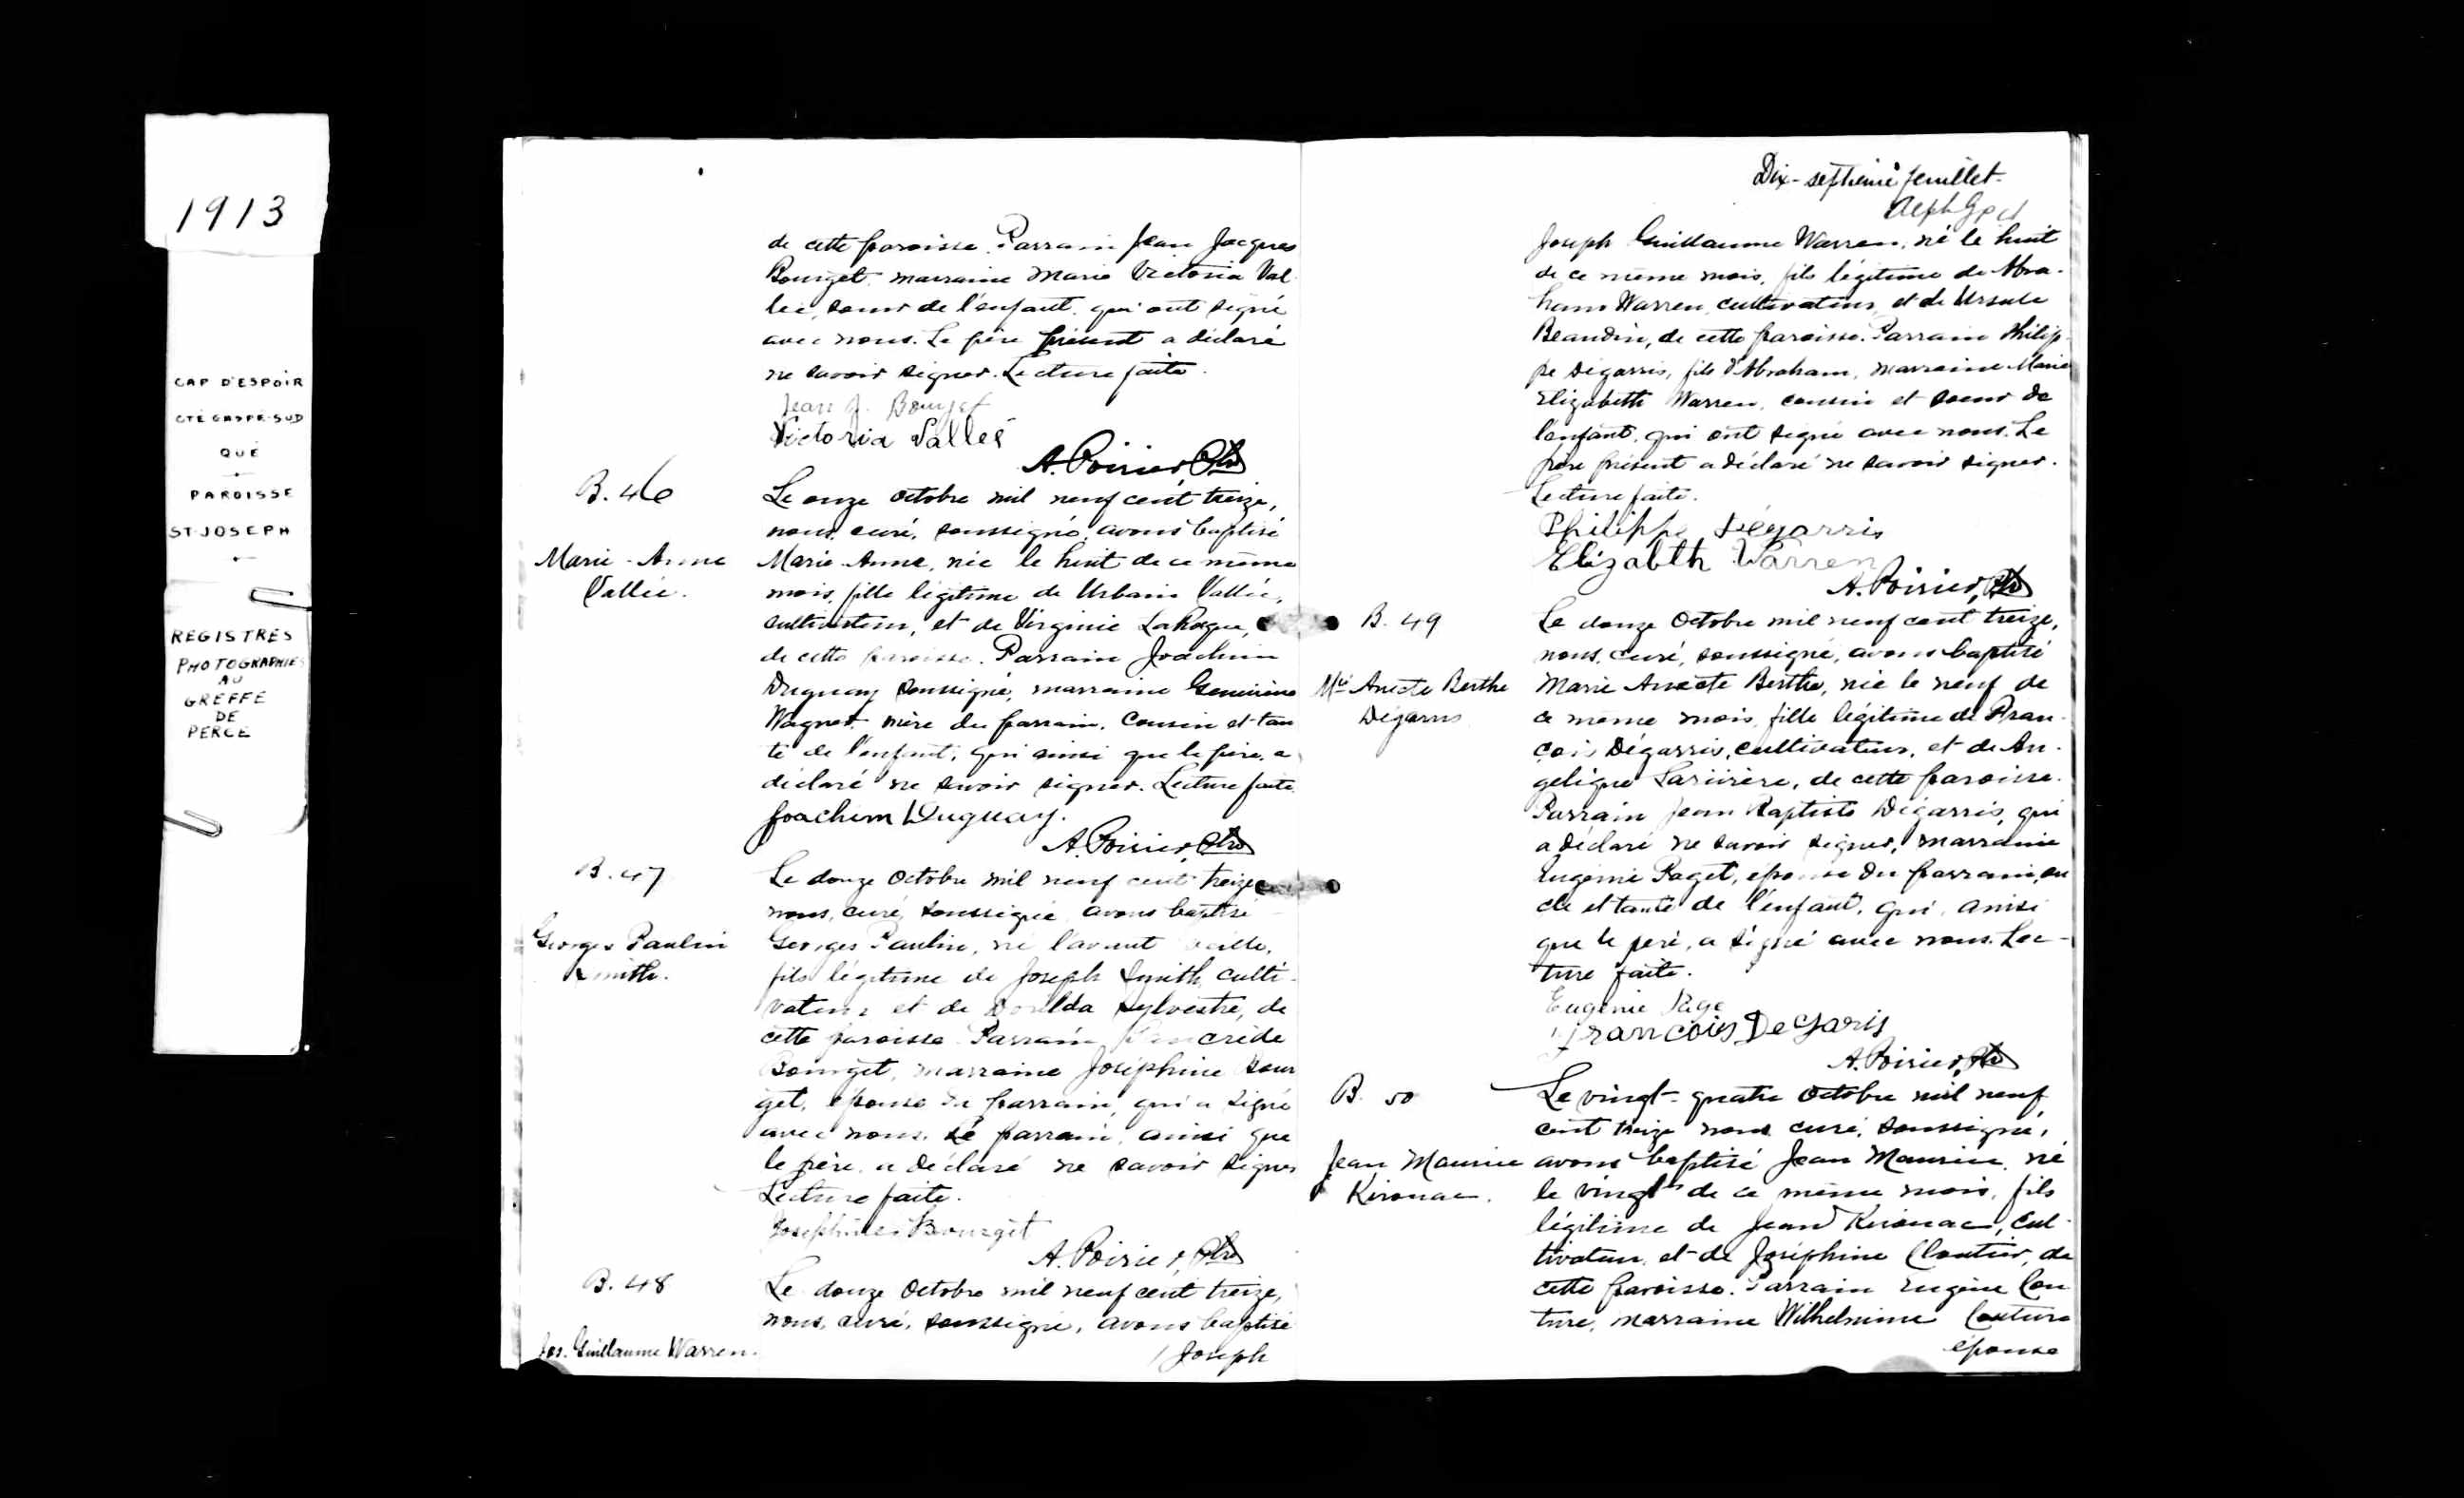 1913
CAP D'ESPOIR
CTÉ GASPÉ-SUD
QUÉ
PAROISSE
ST-JOSEPH
REGISTRES
PHOTOGRAPHIÉS
AU
GREFFE
DE
PERCÉ
de cette paroisse. Parrain Jean Jacques
Bourget, marraine Marie Victoria Val-
lée, sœur de l'enfant, qui ont signé
avec nous. Le père présent a déclaré
ne savoir signer. Lecture faite.
Jean J. Bourget
Victoria Vallée
A. Poirier, Ptre
B. 46
Marie-Anne
Vallée.
Le onze octobre mil neuf cent treize,
nous, curé, soussigné, avons baptisé
Marie-Anne, née le huit de ce même
mois, fille légitime de Urbain Vallée,
cultivateur, et de Virginie LaRoque,
de cette paroisse. Parrain Joachim
Duguay soussigné, marraine Geneviève
Wagner mère du parrain, cousin et tan
te de l'enfant, qui ainsi que le père, a
déclaré ne savoir signer. Lecture faite.
Joachim Duguay.
A. Poirier, Ptre
B. 47
Georges Paulin
Smith.
Le douze Octobre mil neuf cent treize
nous, curé, soussigné avons baptisé
Georges Paulin, né l'avant veille,
fils légitime de Joseph Smith, culti-
vateur et de Sylvestre, de
cette paroisse. Parrain
Bourget, marraine Joséphine Bour
get, épouse du parrain, qui a signé
avec nous. Le parrain, ainsi que
le père, a déclaré ne savoir signer
Lecture faite.
Josephine Bourget
A. Poirier, Ptre
B. 48
Jos. Guillaume Warren.
Le douze Octobre mil neuf cent treize,
nous, curé, soussigné, avons baptisé
/ Joseph
Dix-septième feuillet.
Joseph Guillaume Warren, né le huit
de ce même mois, fils légitime de Abra-
ham Warren, cultivateur, et de Ursule
Beaudin, de cette paroisse. Parrain Philip-
pe Dégarris, fils d'Abraham, marraine Marie
Elizabeth Warren, cousin et sœur de
l'enfant, qui ont signé avec nous. Le
père présent a déclaré ne savoir signer.
Lecture faite.
Philippe Dégarris
Elizabeth Warren
A. Poirier, Ptre
B. 49
Mie Anecte Berthe
Dégarris
Le douze Octobre mil neuf cent treize,
nous, curé, soussigné, avons baptisé
Marie Anecte Berthe, née le neuf de
ce même mois, fille légitime de Fran-
çois Dégarris, cultivateur, et de An-
gelique Larivière, de cette paroisse.
Parrain Jean Baptiste Dégarris, qui
a déclaré ne savoir signer, marraine
Eugénie Paget, épouse du parrain, on
cle et tante de l'enfant, qui, ainsi
que le père, a signé avec nous. Lec-
ture faite.
Eugénie Page
François DeGaris
A. Poirier, Ptre
B. 50
Jean Maurice
Kirouac.
Le vingt-quatre Octobre mil neuf
cent treize nous curé, soussigné,
avons baptisé Jean Maurice, né
le vingt de ce même mois, fils
légitime de Jean Kirouac, cul-
tivateur, et de Joséphine Cloutier, de
cette paroisse. Parrain Eugène Cou
ture, marraine Wilhelmine Couture
épouse